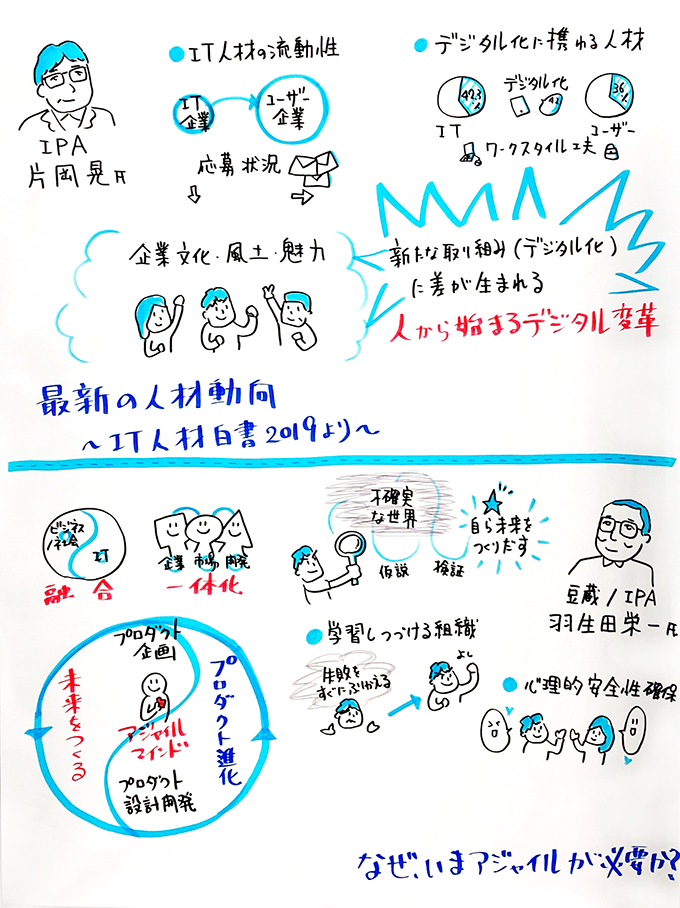 IPA
片岡晃氏
●IT人材の流動性
IT
企業
ユーザー
企業
応募状況
●デジタル化に携わる人材
42.3
%
デジタル化
36
%
IT
ユーザー
ワークスタイル工夫
企業文化・風土・魅力
新たな取り組み(デジタル化)
に差が生まれる
人から始まるデジタル変革
最新の人材動向
~IT人材白書2019より~
ビジネス
/社会
IT
融合
企業 市場 開発
一体化
不確実
な世界
仮説
検証
自ら未来を
つくりだす
豆蔵/IPA
羽生田栄一氏
プロダクト
企画
未来をつくる
アジャイル
マインド
プロダクト進化
プロダクト
設計開発
●学習しつづける組織
失敗を
すぐにふりかえる
よし
●心理的安全性確保
なぜ、いまアジャイルが必要か?